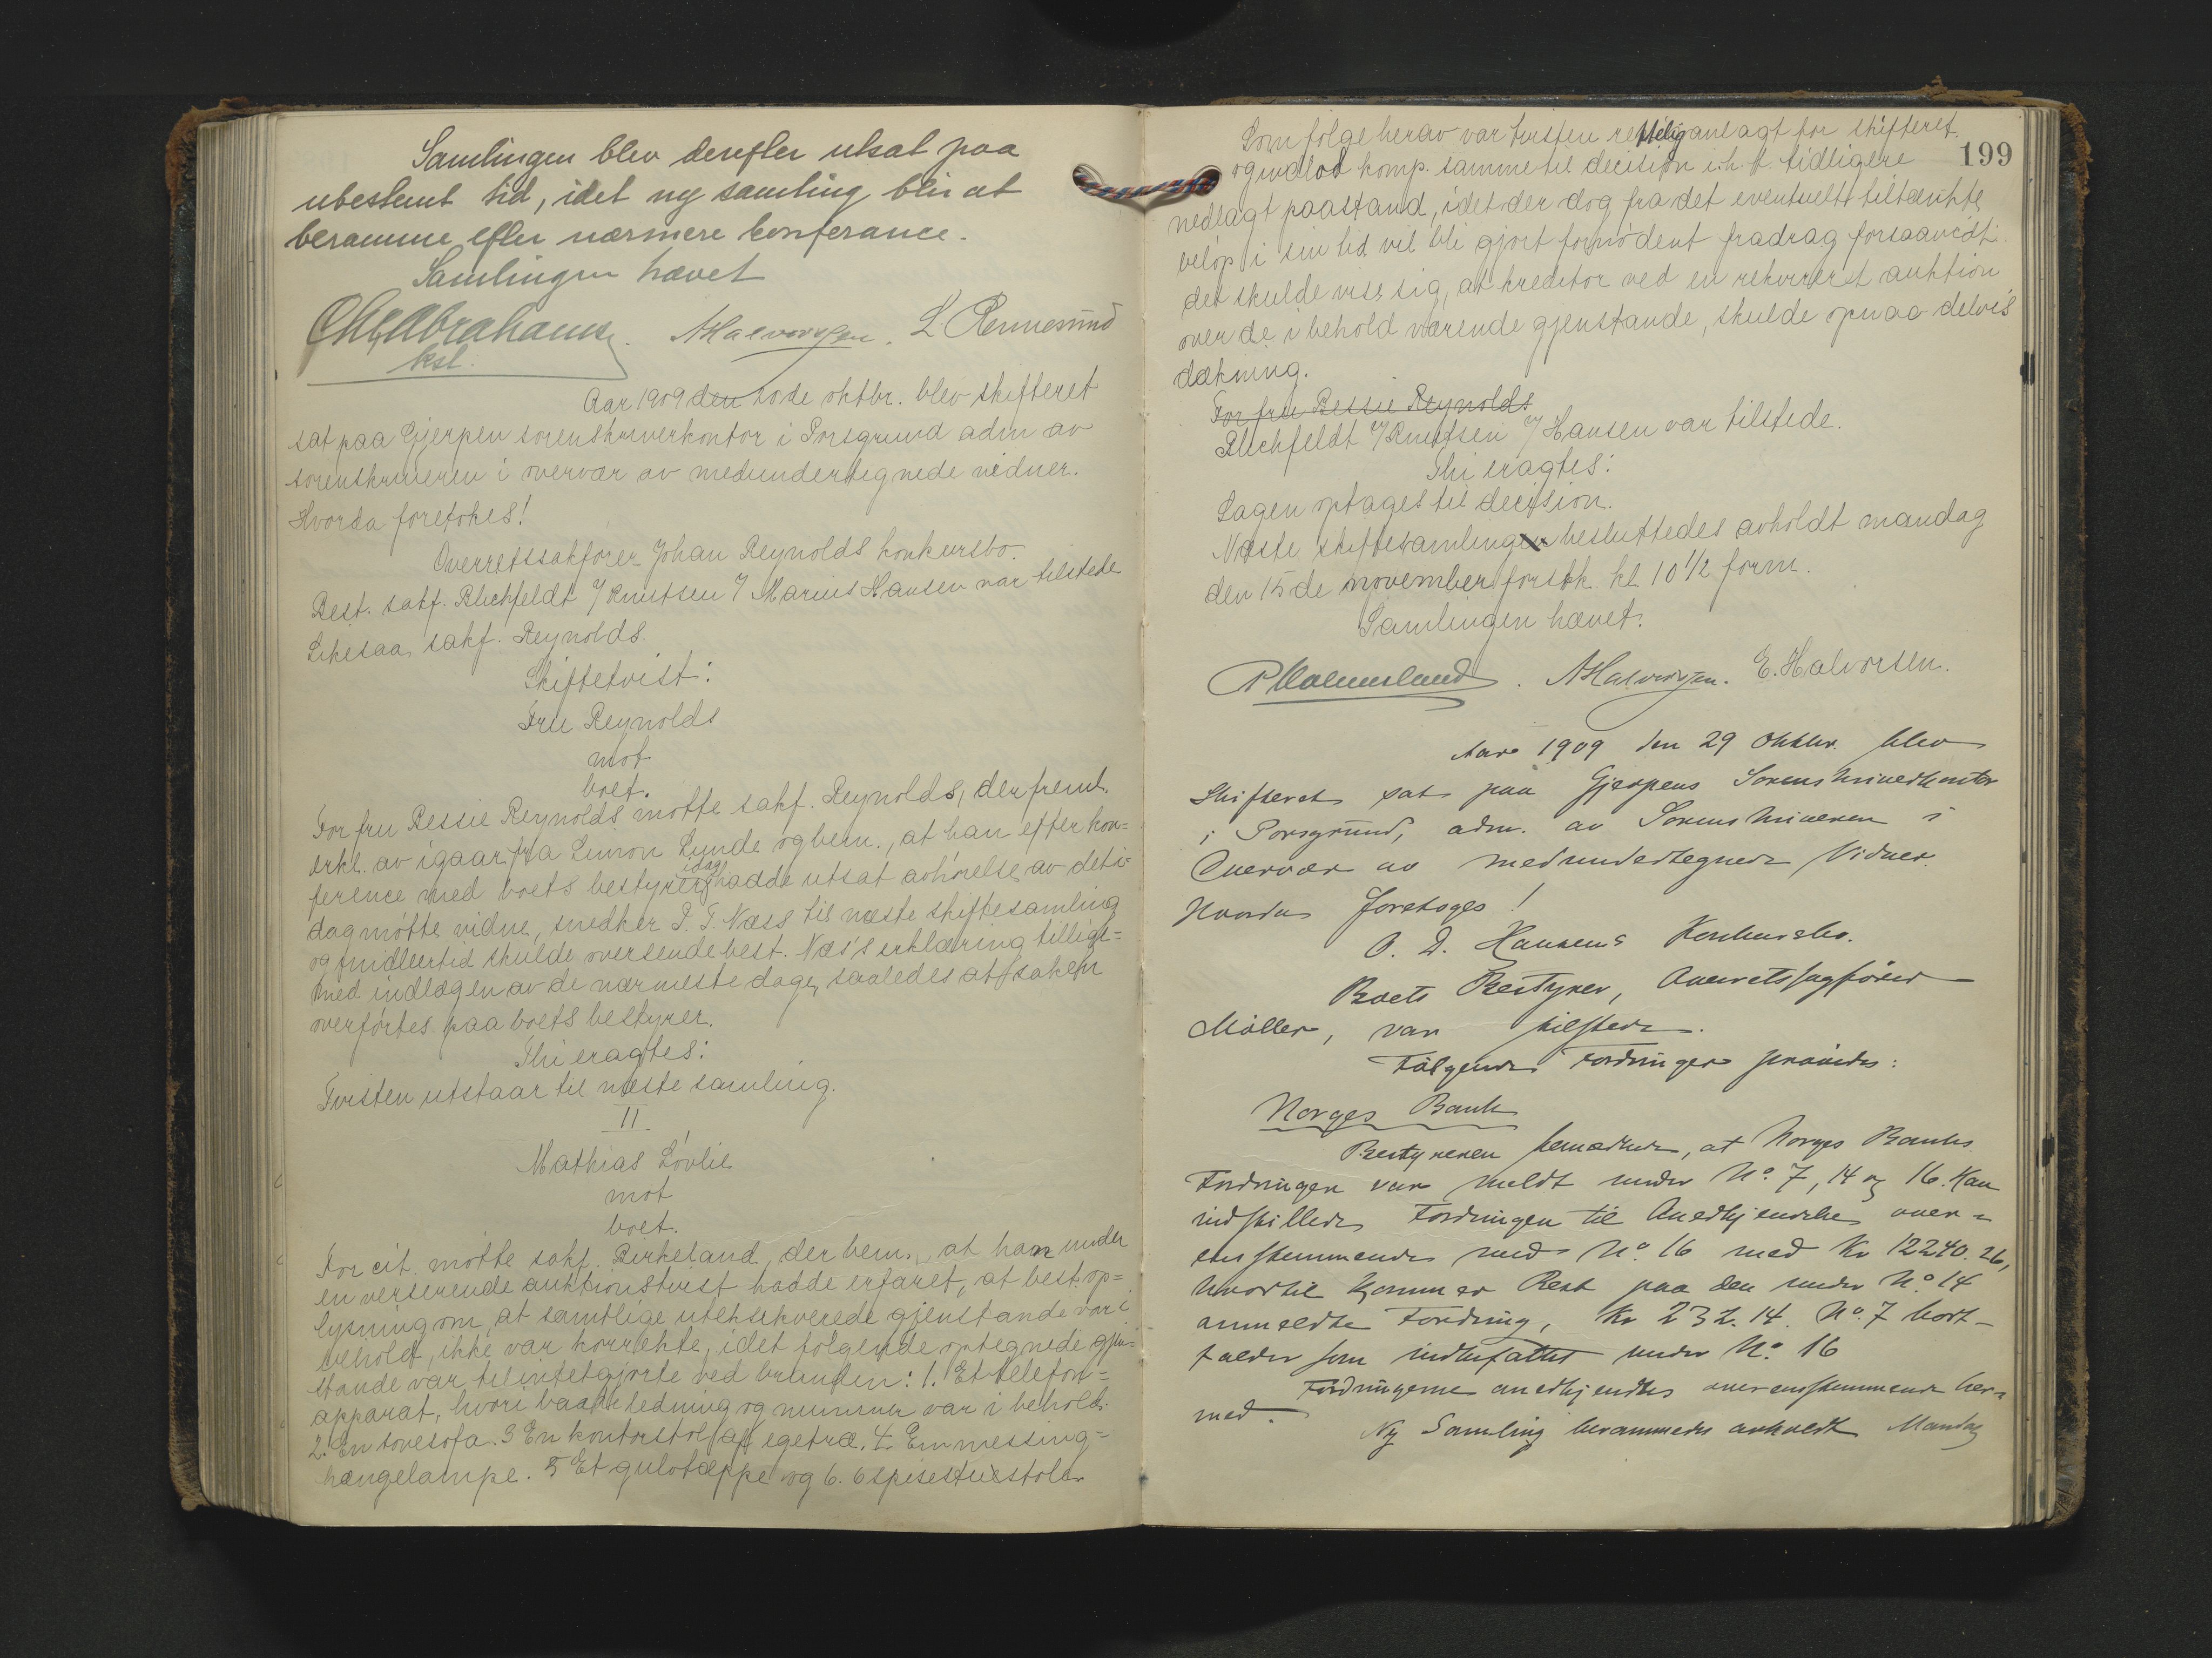 Samlingen blev derefter utsat paa
ubestemt tid, idet ny samling blir at
beramme efter nærmere konferance.
Samlingen hævet
Abrahams. AHalvorsen. L. Rennesund
kst.
Aar 1909 den 20de oktbr. blev skifteret
sat paa Gjerpen sorenskriverkontor i Porsgrund adm av
sorenskriveren i overvær av medundertegnede vidner.
Hvorda foretokes!
Overretssakfører Johan Reynolds konkursbo.
Best. sakf. Blichfeldt %Knutsen % Marius Hansen var tilstede
Likesaa sakf. Reynolds.
Skiftetvist:
Fru Reynolds
mot
boet.
For fru Bessie Reynolds møtte sakf. Reynolds, der freml.
erkl. av igaar fra Simon Lunde og bem., at han efter kon=
ference med boets bestyrer idag hadde utsat avhørelse av det i
dag møtte vidne, snedker P. T. Næss til næste skiftesamling
og imidlertid skulde oversende best. Næs's erklæring tillige=
med indlæg en av de nærmeste dage, saaledes at saken
overførtes paa boets bestyrer.
Thi eragtes:
Tvisten utstaar til næste samling.
II
Mathias Løvlie
mot
boet.
For cit. møtte sakf. Birkeland, der bem., at han under
en verserende auktionstvist hadde erfaret, at best. op=
lysning om, at samtlige utekskverede gjenstande var i
behold, ikke var korrekte, idet følgende optegnede gjen=
stande var tilintetgjorte ved branden: 1. Et telefon=
apparat, hvori baade ledning og nummer var i behold.
2. En sovesofa. 3 En kontorstol af egetræ. 4. En messing=
hængelampe. 5 Et gulvtæppe og 6. 6 spisestuestoler
199
Som følge herav var tvisten rettelig anlagt for skifteret
og indlod komp. samme til decision i.h.t. tidligere
nedlagt paastand, idet der dog fra det eventuelt tilkjendte
beløp i sin tid vil bli gjort fornødent fradrag forsaavidt
det skulde vise sig, at kreditor ved en rekvireret auktion
over de i behold værende gjenstande, skulde opnaa delvis
dækning.
For fru Bessie Reynolds
Blichfeldt %Knutsen % Hansen var tilstede.
Thi eragtes:
Sagen optages til decision.
Næste skiftesamling besluttedes avholdt mandag
den 15de november førstk. kl 10 1/2 form.
Samlingen hævet.
AHalvorsen. E. Halvorsen.
Aar 1909 den 29 Oktbr. blev
Skifteret sat paa Gjerpens Sorenskriverkontor
i Porsgrund, adm. av Sorenskriveren i
Overvær av medundertegnede Vidner.
Hvorda foretoges!
O. D. Hansens Konkursbo.
Boets Bestyrer, Overretssagfører
Møller, var tilstede.
Følgende Fordringer prøvedes:
Norges Bank
Bestyreren bemærkede, at Norges Banks
Fordringer var meldt under No. 7, 14 og 16. Han
indstillede Fordringen til Anerkjendelse over=
ensstemmende med No. 16 med Kr 12240.26,
hvortil kommer Rest paa den under No 14
anmeldte Fordring, Kr 232.14. No. 7 bort-
falder som indbefattet under No. 16
Fordringerne anerkjendtes overensstemmende her=
med.
Ny Samling berammedes avholdt Mandag